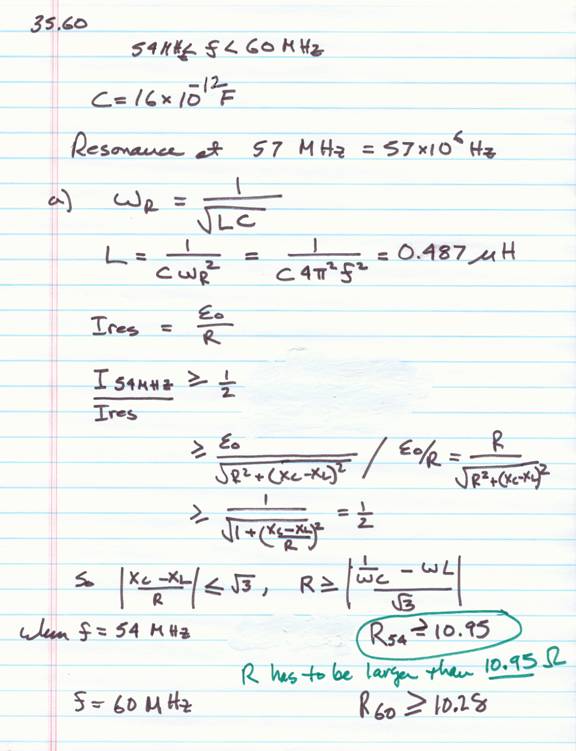 35.60
54MHz < f < 60 MHz
C = 16 × 10⁻¹² F
Resonance at 57 MHz = 57×10⁶ Hz
a) ω_R = 1/√(LC)
L = 1/(C ω_R²) = 1/(C 4π² f²) = 0.487 μH
I_res = ε₀/R
I_54MHz/I_res ≥ 1/2
≥ ε₀/√(R²+(X_C-X_L)²) / ε₀/R = R/√(R²+(X_C-X_L)²)
≥ 1/√(1+((X_C-X_L)/R)²) = 1/2
So |(X_C-X_L)/R| ≤ √3, R ≥ |(1/ωC - ωL)/√3|
when f = 54 MHz R₅₄ ≥ 10.95
R has to be larger than 10.95 Ω
f = 60 MHz R₆₀ ≥ 10.28